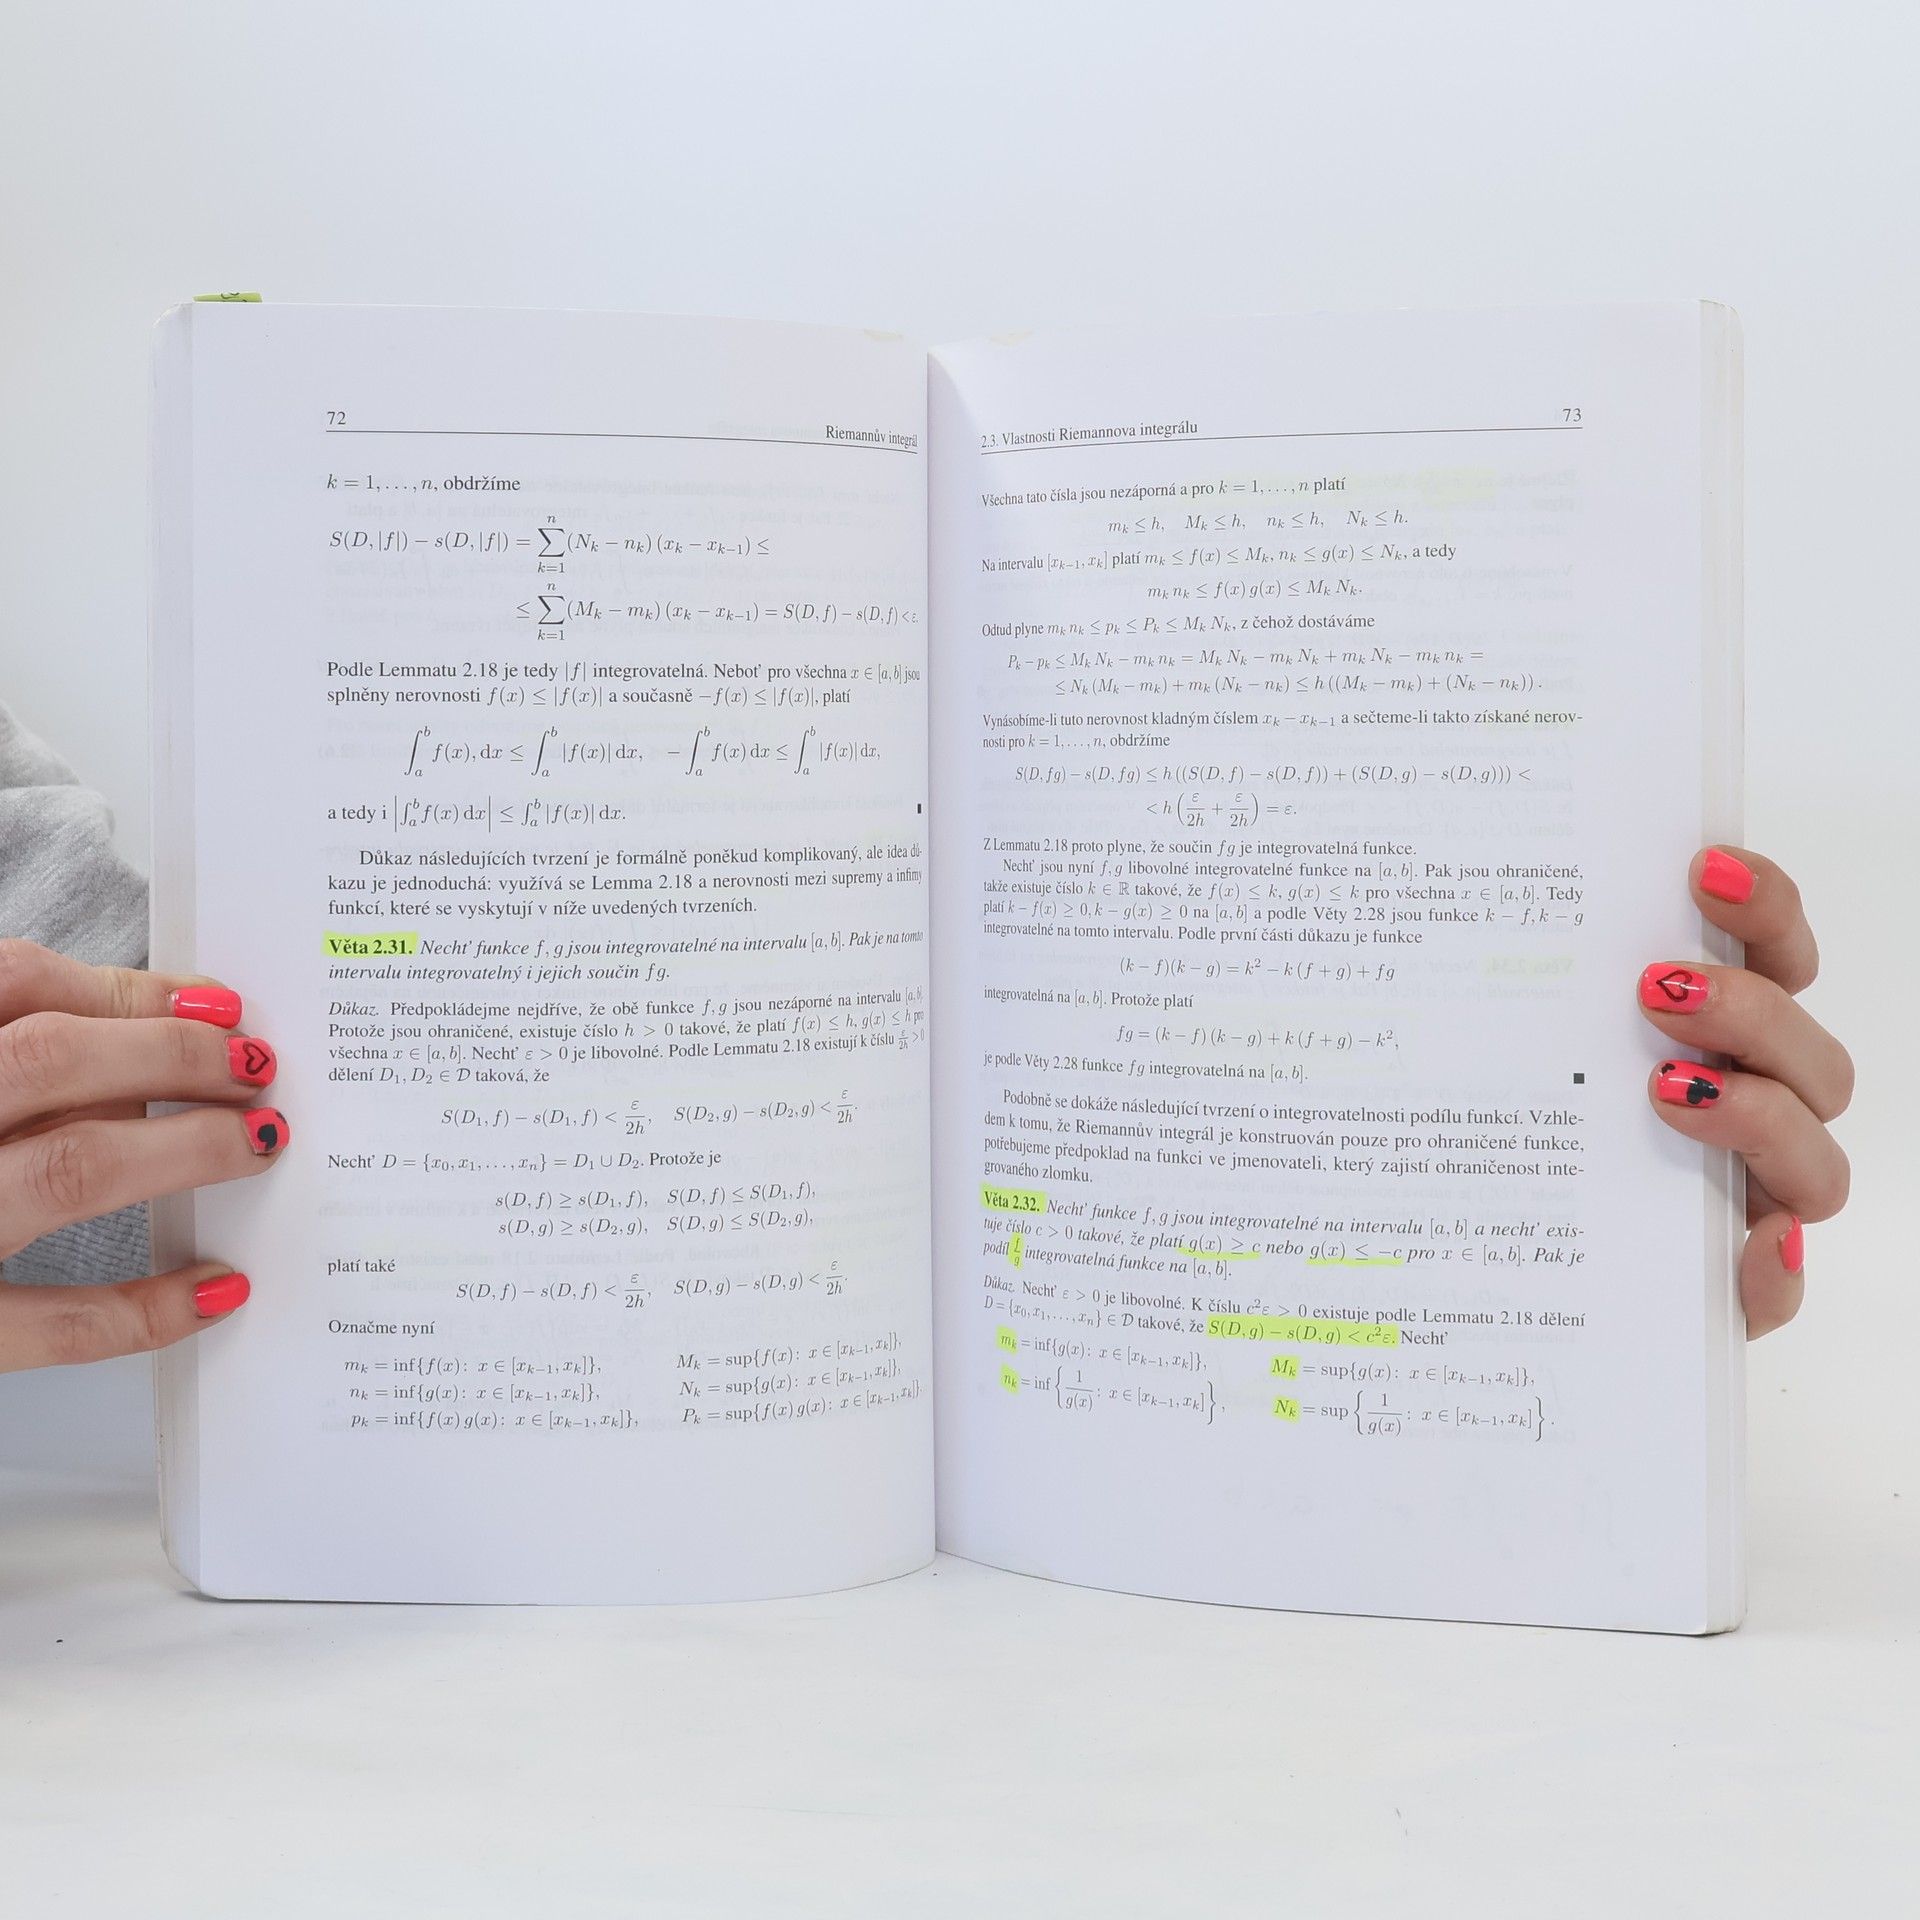 72
Riemannův integrál
k = 1, . . . , n, obdržíme
S(D, |f|) − s(D, |f|) = ∑_{k=1}^{n} (N_k − n_k) (x_k − x_{k−1}) ≤
≤ ∑_{k=1}^{n} (M_k − m_k) (x_k − x_{k−1}) = S(D, f) − s(D, f) < ε.
Podle Lemmatu 2.18 je tedy |f| integrovatelná. Neboť pro všechna x ∈ [a, b] jsou
splněny nerovnosti f(x) ≤ |f(x)| a současně −f(x) ≤ |f(x)|, platí
∫_a^b f(x), dx ≤ ∫_a^b |f(x)| dx, −∫_a^b f(x) dx ≤ ∫_a^b |f(x)| dx,
a tedy i |∫_a^b f(x) dx| ≤ ∫_a^b |f(x)| dx.
Důkaz následujících tvrzení je formálně poněkud komplikovaný, ale idea dů-
kazu je jednoduchá: využívá se Lemma 2.18 a nerovnosti mezi supremy a infimy
funkcí, které se vyskytují v níže uvedených tvrzeních.
Věta 2.31. Nechť funkce f, g jsou integrovatelné na intervalu [a, b]. Pak je na tomto
intervalu integrovatelný i jejich součin fg.
Důkaz. Předpokládejme nejdříve, že obě funkce f, g jsou nezáporné na intervalu [a, b].
Protože jsou ohraničené, existuje číslo h > 0 takové, že platí f(x) ≤ h, g(x) ≤ h pro
všechna x ∈ [a, b]. Nechť ε > 0 je libovolné. Podle Lemmatu 2.18 existují k číslu ε/2h > 0
dělení D₁, D₂ ∈ 𝒟 taková, že
S(D₁, f) − s(D₁, f) < ε/2h, S(D₂, g) − s(D₂, g) < ε/2h.
Nechť D = {x₀, x₁, . . . , x_n} = D₁ ∪ D₂. Protože je
s(D, f) ≥ s(D₁, f), S(D, f) ≤ S(D₁, f),
s(D, g) ≥ s(D₂, g), S(D, g) ≤ S(D₂, g),
platí také
S(D, f) − s(D, f) < ε/2h, S(D, g) − s(D, g) < ε/2h.
Označme nyní
m_k = inf{f(x): x ∈ [x_{k−1}, x_k]}, M_k = sup{f(x): x ∈ [x_{k−1}, x_k]},
n_k = inf{g(x): x ∈ [x_{k−1}, x_k]}, N_k = sup{g(x): x ∈ [x_{k−1}, x_k]},
p_k = inf{f(x) g(x): x ∈ [x_{k−1}, x_k]}, P_k = sup{f(x) g(x): x ∈ [x_{k−1}, x_k]}.
2.3. Vlastnosti Riemannova integrálu
73
Všechna tato čísla jsou nezáporná a pro k = 1, . . . , n platí
m_k ≤ h, M_k ≤ h, n_k ≤ h, N_k ≤ h.
Na intervalu [x_{k−1}, x_k] platí m_k ≤ f(x) ≤ M_k, n_k ≤ g(x) ≤ N_k, a tedy
m_k n_k ≤ f(x) g(x) ≤ M_k N_k.
Odtud plyne m_k n_k ≤ p_k ≤ P_k ≤ M_k N_k, z čehož dostáváme
P_k − p_k ≤ M_k N_k − m_k n_k = M_k N_k − m_k N_k + m_k N_k − m_k n_k =
≤ N_k (M_k − m_k) + m_k (N_k − n_k) ≤ h ((M_k − m_k) + (N_k − n_k)) .
Vynásobíme-li tuto nerovnost kladným číslem x_k − x_{k−1} a sečteme-li takto získané nerov-
nosti pro k = 1, . . . , n, obdržíme
S(D, fg) − s(D, fg) ≤ h ((S(D, f) − s(D, f)) + (S(D, g) − s(D, g))) <
< h (ε/2h + ε/2h) = ε.
Z Lemmatu 2.18 proto plyne, že součin fg je integrovatelná funkce.
Nechť jsou nyní f, g libovolné integrovatelné funkce na [a, b]. Pak jsou ohraničené,
takže existuje číslo k ∈ ℝ takové, že f(x) ≤ k, g(x) ≤ k pro všechna x ∈ [a, b]. Tedy
platí k − f(x) ≥ 0, k − g(x) ≥ 0 na [a, b] a podle Věty 2.28 jsou funkce k − f, k − g
integrovatelné na tomto intervalu. Podle první části důkazu je funkce
(k − f)(k − g) = k² − k (f + g) + fg
integrovatelná na [a, b]. Protože platí
fg = (k − f) (k − g) + k (f + g) − k²,
je podle Věty 2.28 funkce fg integrovatelná na [a, b].
Podobně se dokáže následující tvrzení o integrovatelnosti podílu funkcí. Vzhle-
dem k tomu, že Riemannův integrál je konstruován pouze pro ohraničené funkce,
potřebujeme předpoklad na funkci ve jmenovateli, který zajistí ohraničenost inte-
grovaného zlomku.
Věta 2.32. Nechť funkce f, g jsou integrovatelné na intervalu [a, b] a nechť exis-
tuje číslo c > 0 takové, že platí g(x) ≥ c nebo g(x) ≤ −c pro x ∈ [a, b]. Pak je
podíl f/g integrovatelná funkce na [a, b].
Důkaz. Nechť ε > 0 je libovolné. K číslu c²ε > 0 existuje podle Lemmatu 2.18 dělení
D = {x₀, x₁, . . . , x_n} ∈ 𝒟 takové, že S(D, g) − s(D, g) < c²ε. Nechť
m_k = inf{g(x): x ∈ [x_{k−1}, x_k]}, M_k = sup{g(x): x ∈ [x_{k−1}, x_k]},
n_k = inf {1/g(x): x ∈ [x_{k−1}, x_k]}, N_k = sup {1/g(x): x ∈ [x_{k−1}, x_k]} .